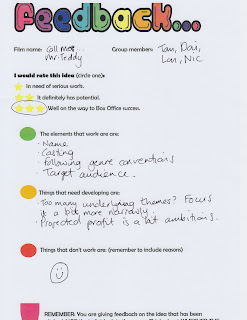 Feedback...
Film name: Call me... Group members: Tom, Dan,
Mr. Teddy Lori, Nic
I would rate this idea (circle one):
In need of serious work.
It definitely has potential.
Well on the way to Box Office success.
The elements that work are are:
· Name
· Casting
· Following genre conventions
· Target audience.
Things that need developing are:
· Too many underlying themes? Focus
it a bit more narrowly.
· Projected profit is a bit ambitious.
Things that don't work are. (remember to include reasons)
REMEMBER: You are giving feedback on the idea that has been